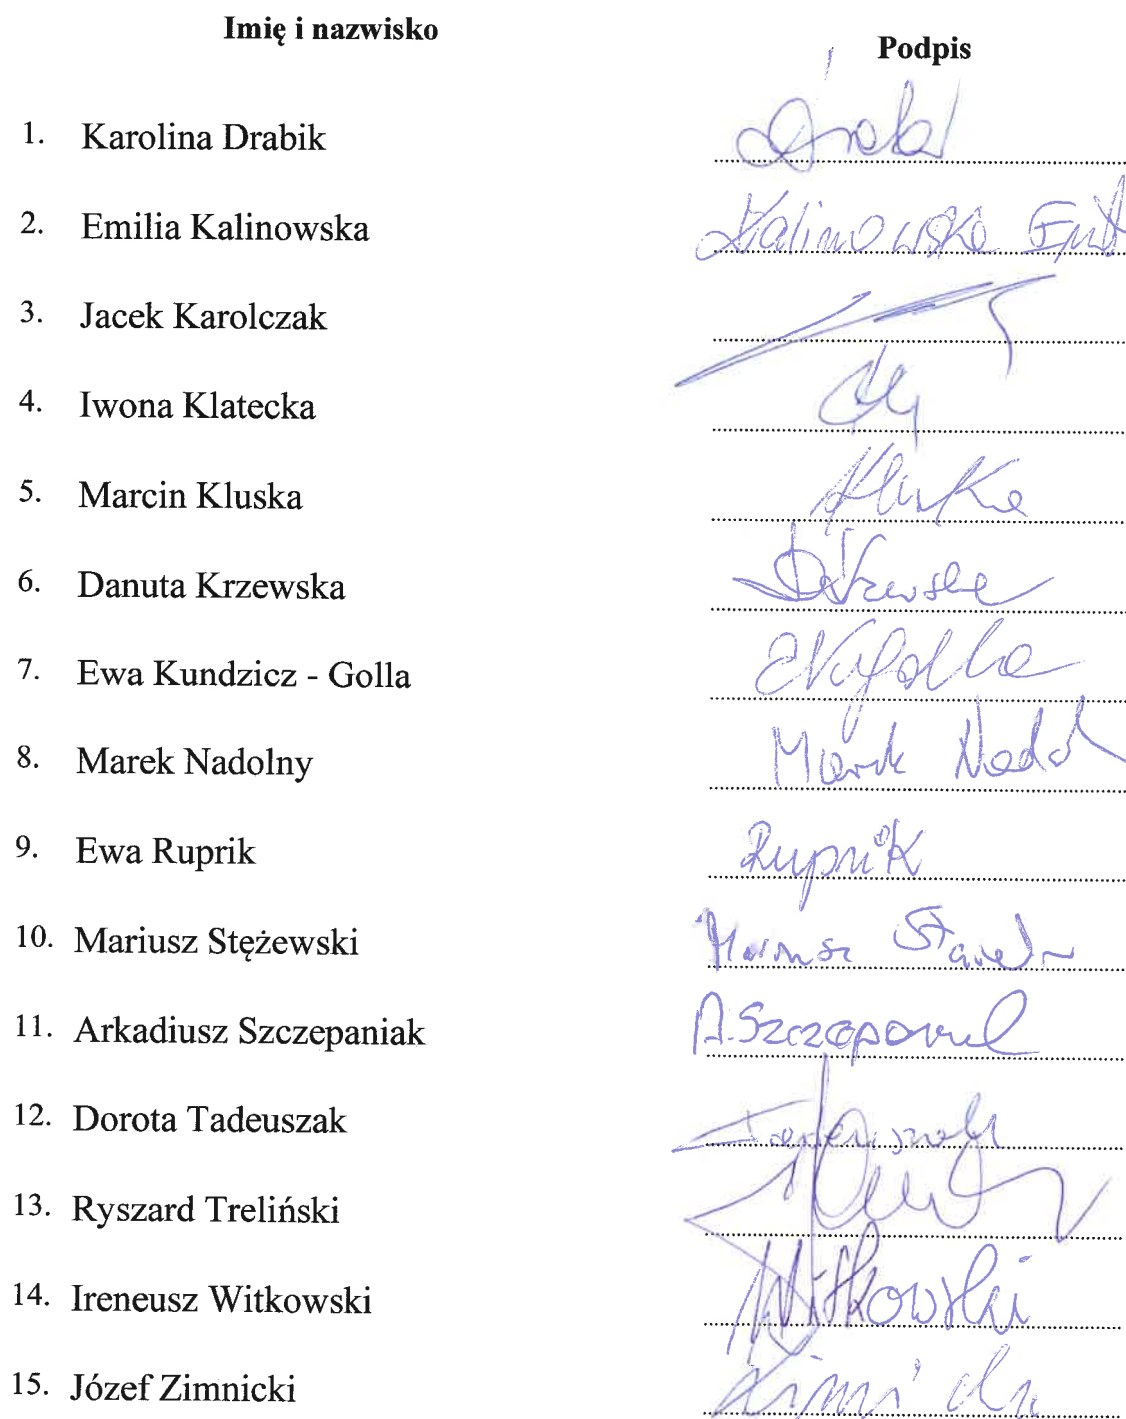 Imię i nazwisko Podpis
1. Karolina Drabik
2. Emilia Kalinowska Kalinowska
3. Jacek Karolczak
4. Iwona Klatecka
5. Marcin Kluska Kluska
6. Danuta Krzewska DKrzewska
7. Ewa Kundzicz - Golla
8. Marek Nadolny Marek
9. Ewa Ruprik Ruprik
10. Mariusz Stężewski Mariusz
11. Arkadiusz Szczepaniak A.Szczepaniak
12. Dorota Tadeuszak Tadeuszak
13. Ryszard Treliński
14. Ireneusz Witkowski Witkowski
15. Józef Zimnicki